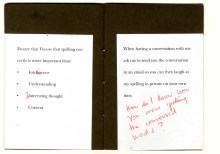 Ensure that I know that spelling cor-
rectly is more important than:
• Intelligence
• Understanding
• Interesting thought
• Content
When having a conversation with me
ask me to send you the conversation
in an email so you can then laugh at
my spelling in private on your own
time.
How do I know
You were spelling
the conversed
word s ?